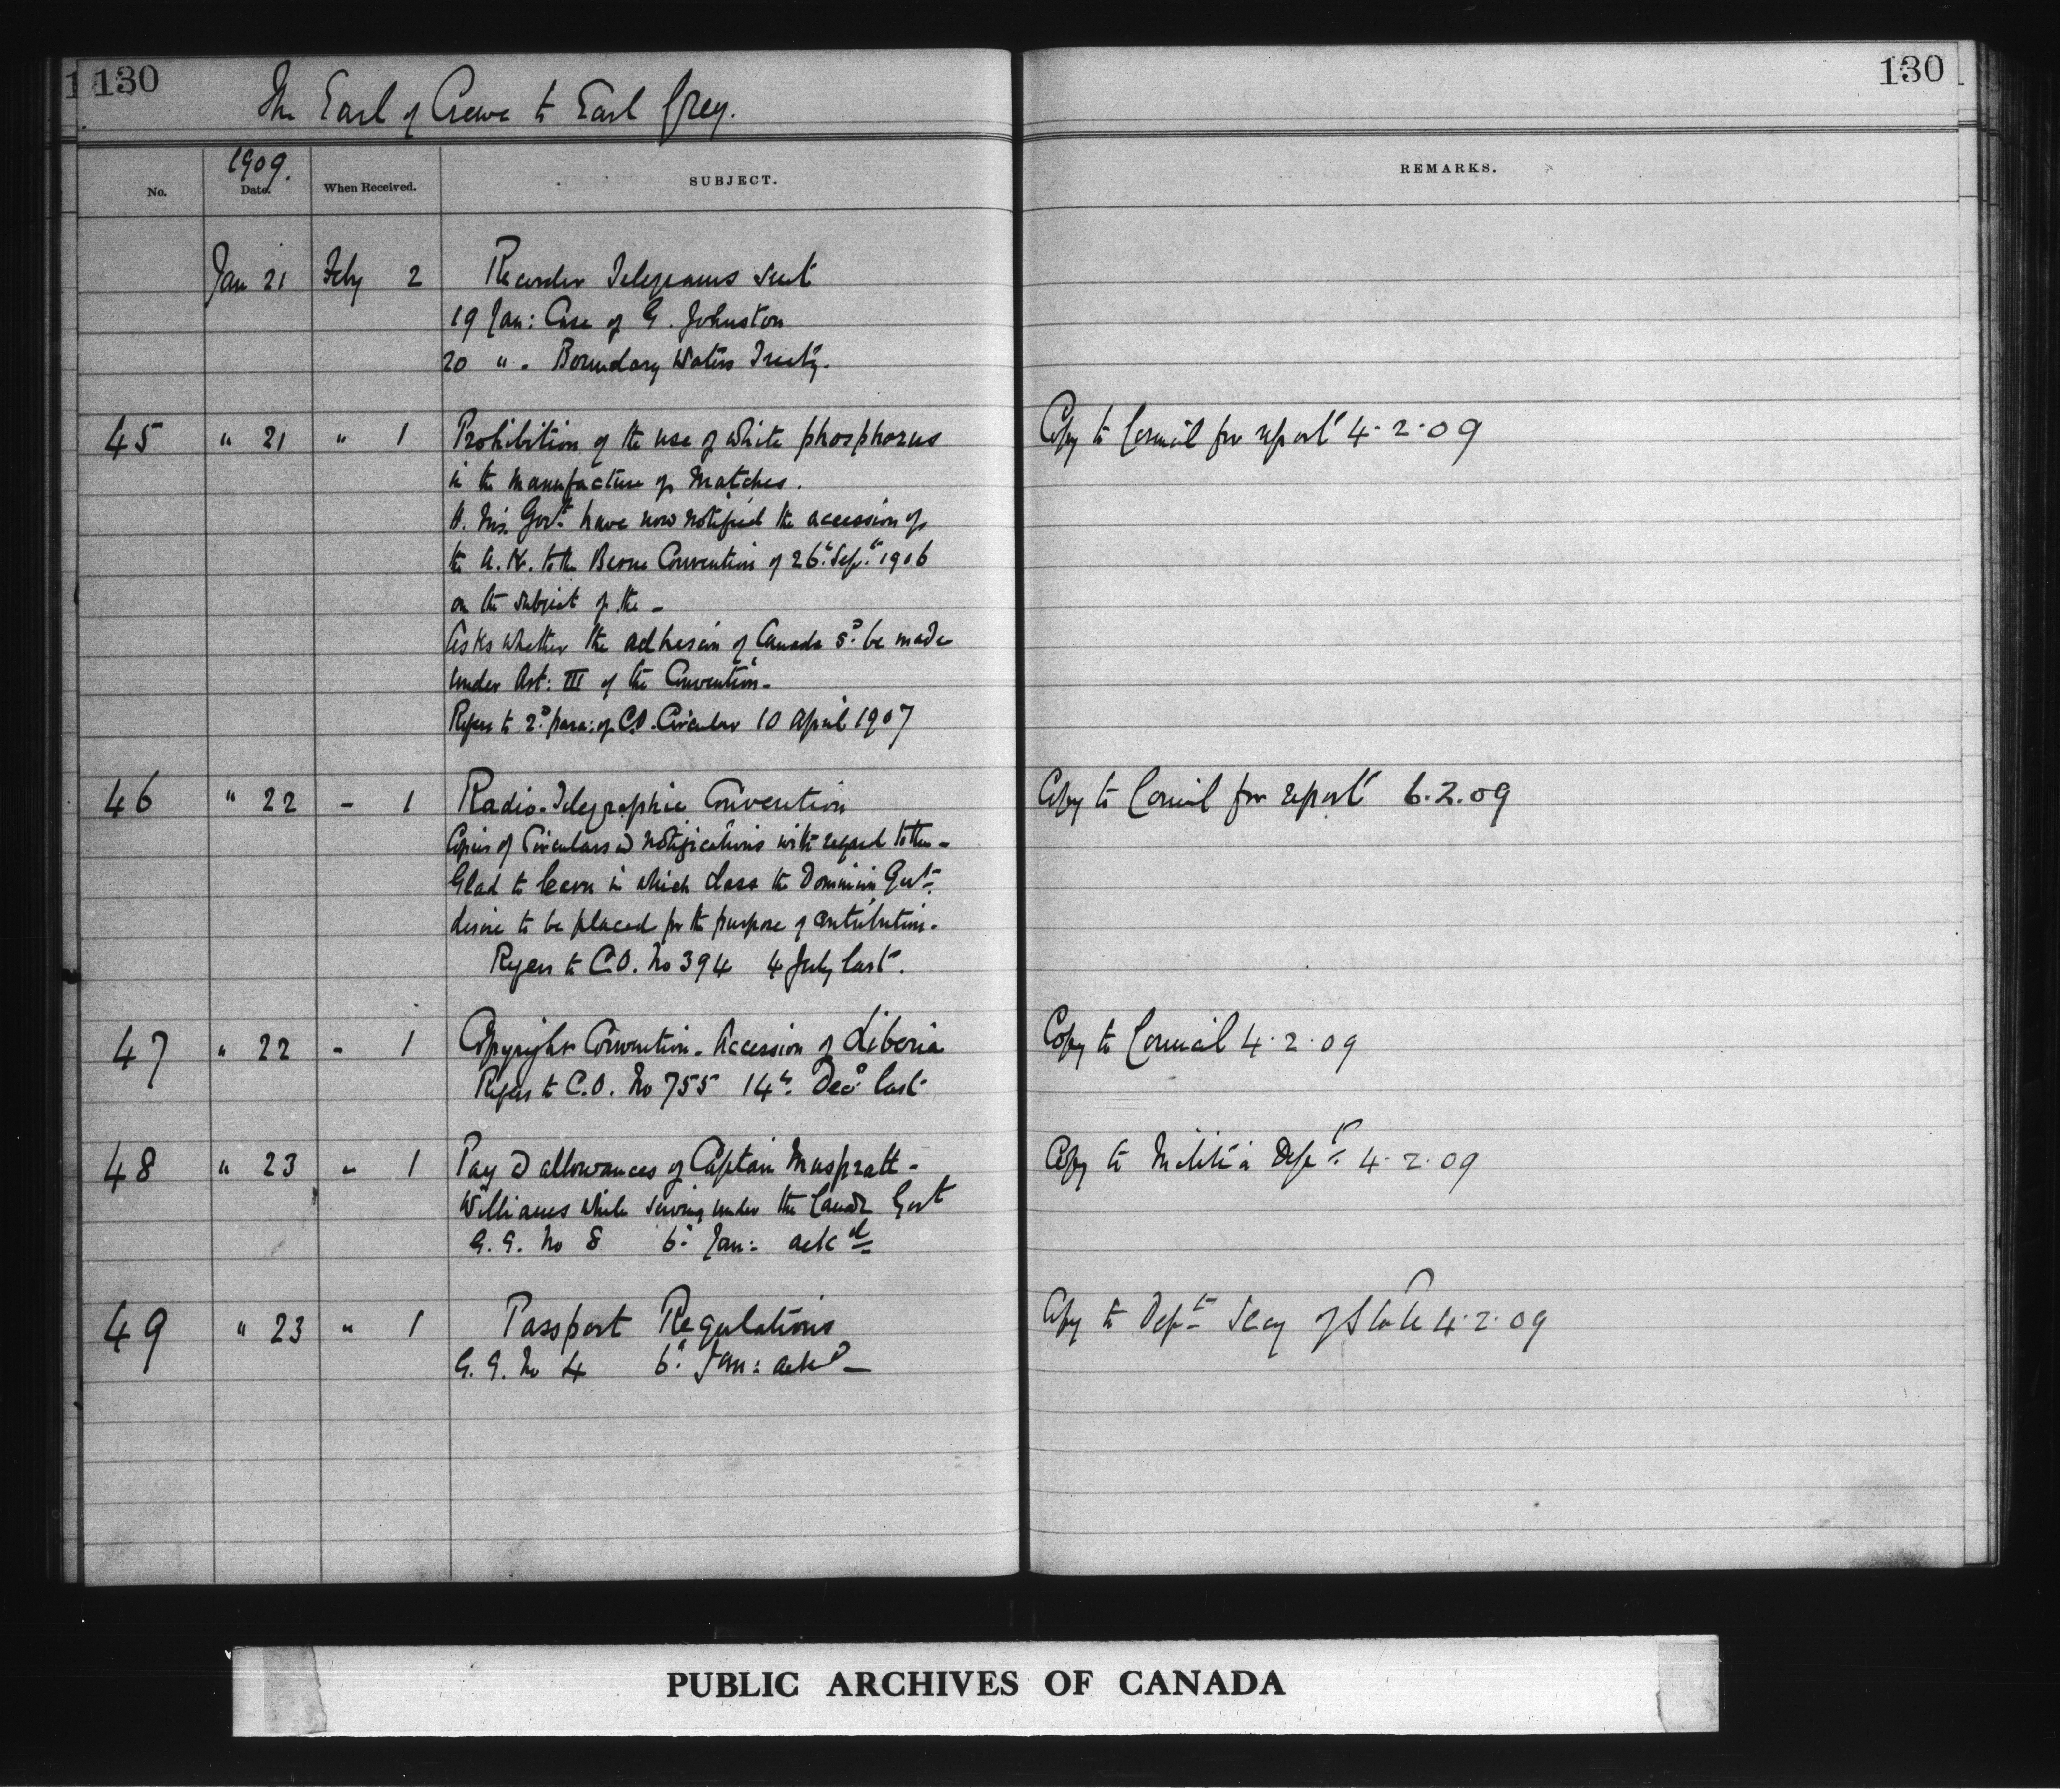 1 130
130
The Earl of Crewe to Earl Grey.
No.
1909.
Date.
When Received.
SUBJECT.
REMARKS.
Jan 21 Feby 2 Recorder Telegrams sent
19 Jan: Case of G. Johnston
20 " - Boundary Waters Treaty.
45 " 21 " 1 Prohibition of the use of white phosphorus Copy to Council for report 4.2.09
in the manufacture of Matches.
H. M's. Govt. have now notified the accession of
the U.K. to the Berne Convention of 26th Sept. 1906
on the subject of the -
Asks whether the adhesion of Canada sd. be made
under Art: III of the Convention -
Refers to 2d. para: of C.O. Circular 10 April 1907
46 " 22 - 1 Radio-Telegraphic Convention Copy to Council for report 6.2.09
Copies of Circulars & notifications with regard to the -
Glad to learn in which class the Dominion Govt.
desire to be placed for the purpose of contribution.
Refers to C.O. No 394 4 July last.
47 " 22 - 1 Copyright Convention - Accession of Liberia Copy to Council 4.2.09
Refers to C.O. No 755 14th. Decr last
48 " 23 " 1 Pay & allowances of Captain Muspratt - Copy to Militia Dept. 4.2.09
Williams while serving under the Canadn Govt
G.G. No 8 6th Jan: ackd
49 " 23 " 1 Passport Regulations Copy to Dept Secy of State 4.2.09
G.G. No 4 6th Jan: ackd -
PUBLIC ARCHIVES OF CANADA